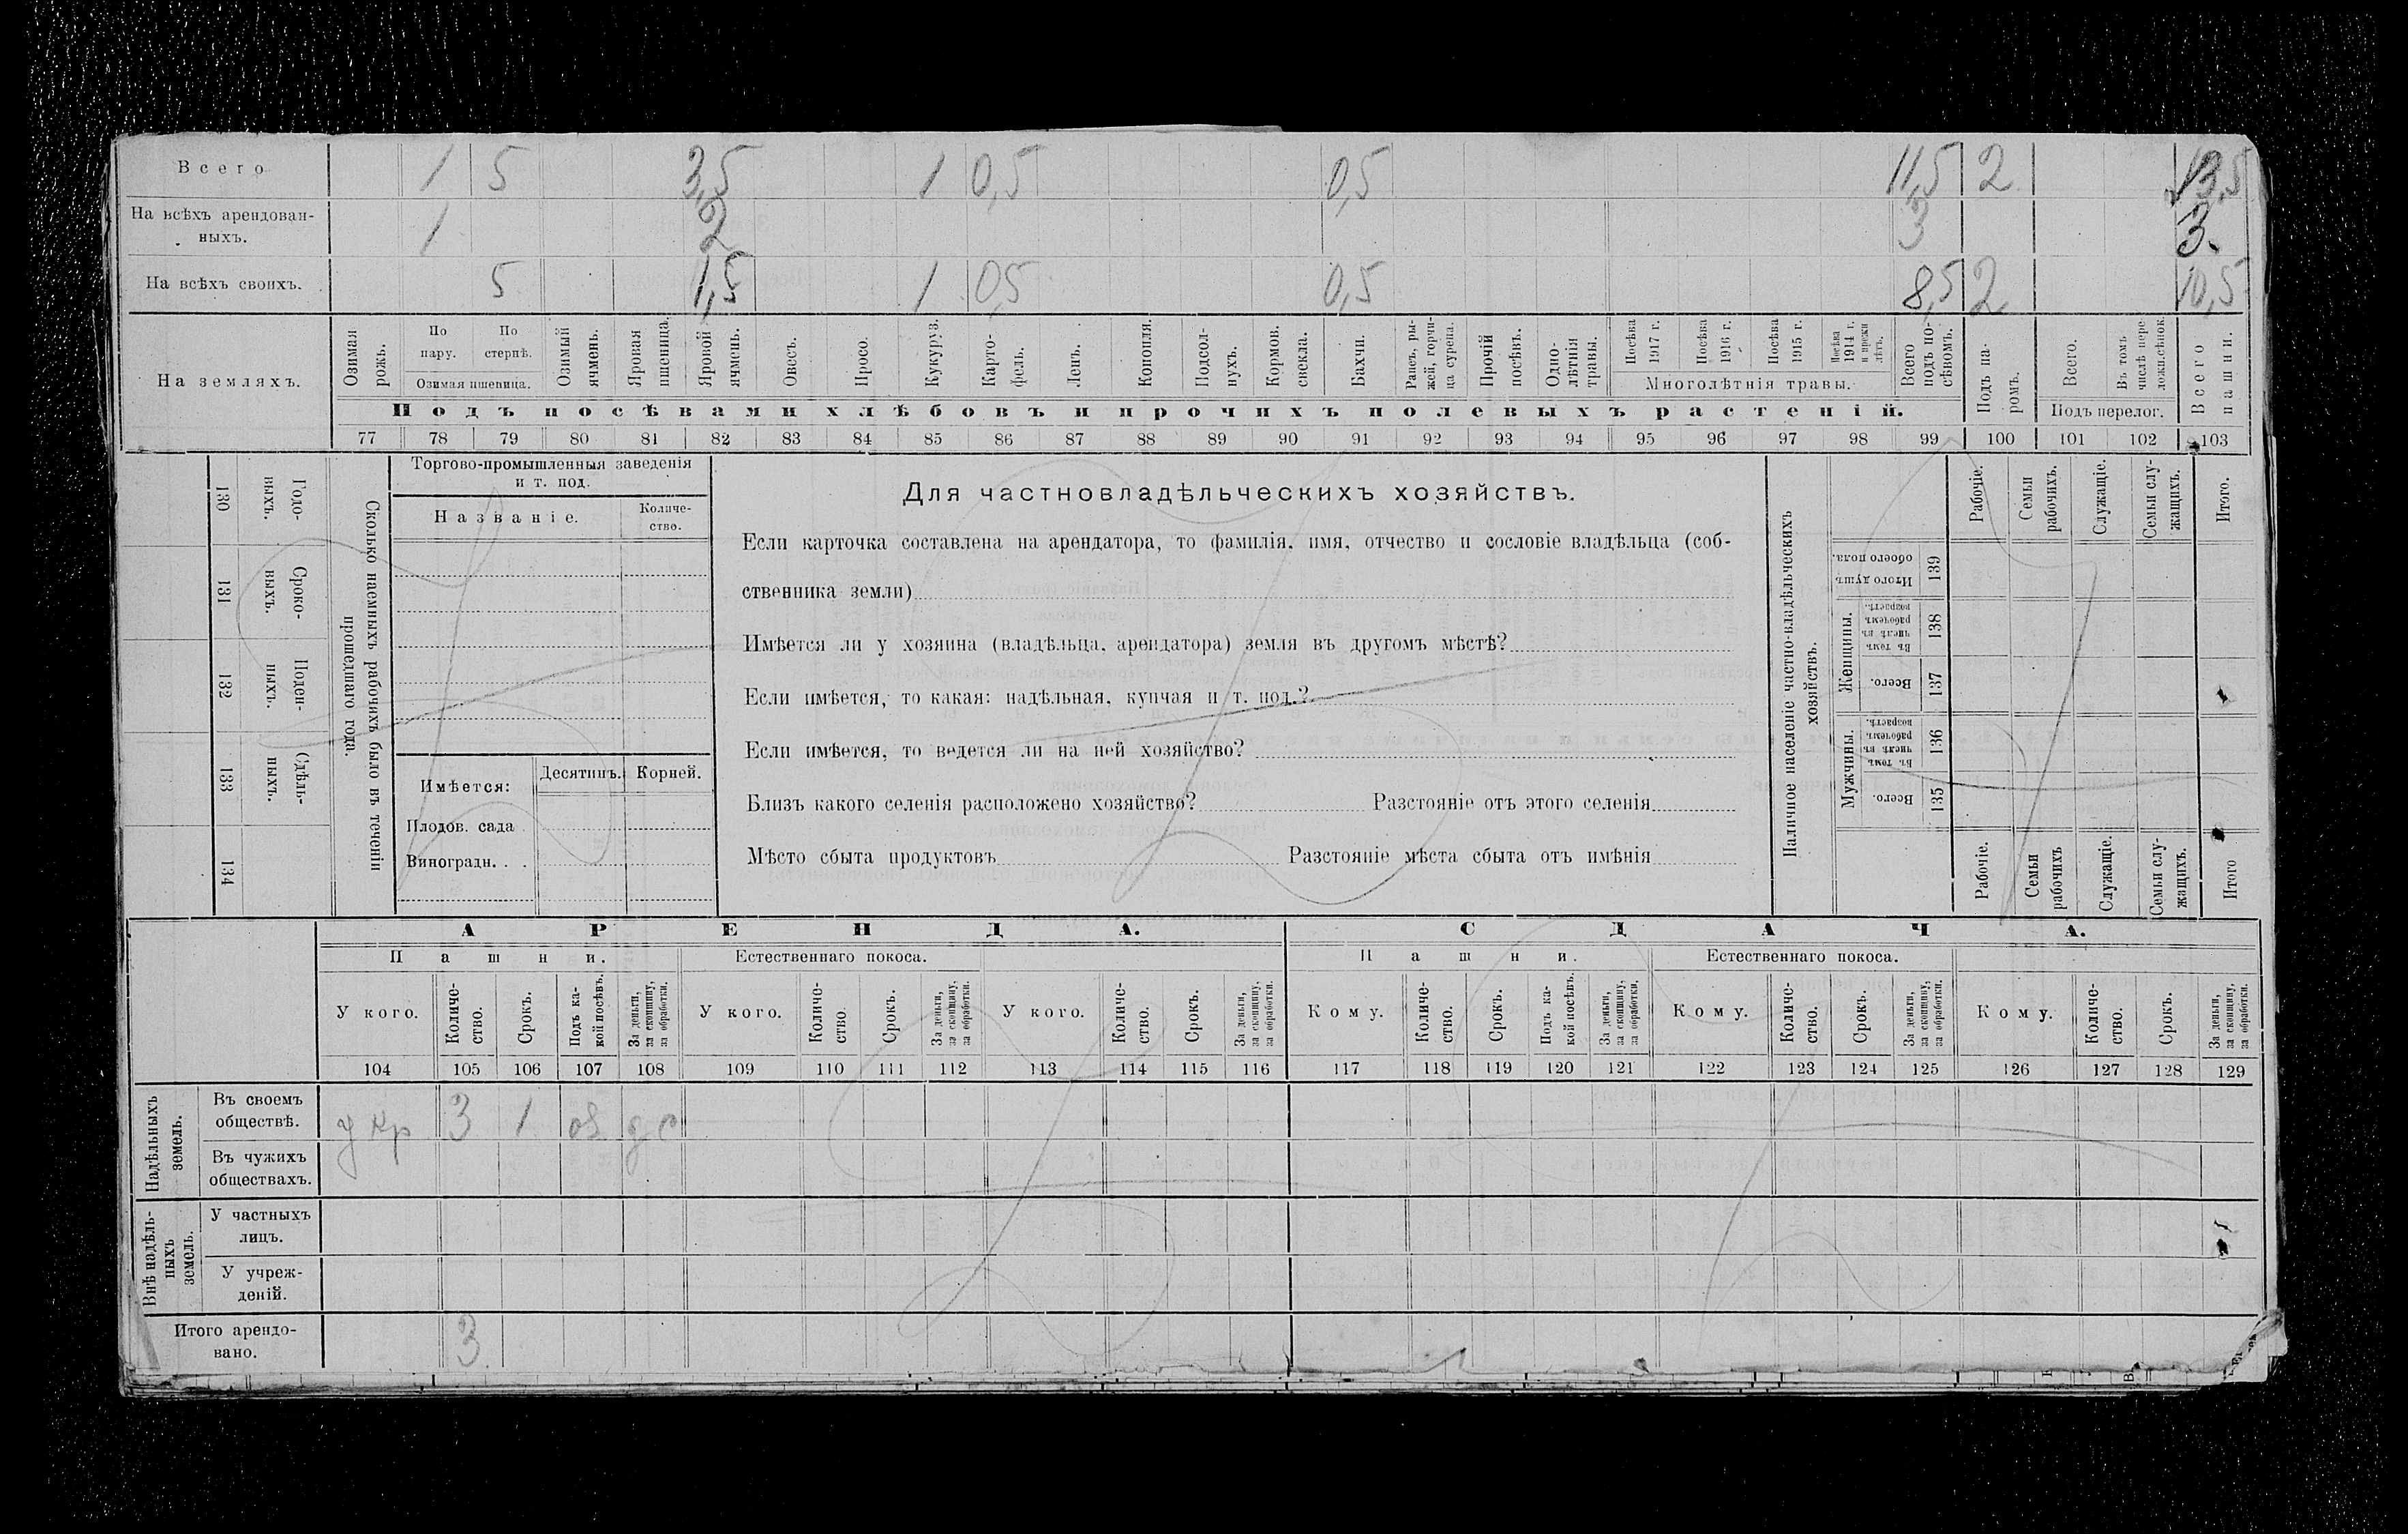 Всего 1 5 3,5 1 0,5 0,5 11,5 2 13,5
На всѣхъ арендован-
ныхъ. 1 2 3 3.
На всѣхъ своихъ. 5 1,5 1 0,5 0,5 8,5 2 10,5
На земляхъ.
Озимая рожь.
По пару.
По стернѣ.
Озимая пшеница.
Озимый ячмень.
Яровая пшеница.
Яровой ячмень.
Овесъ.
Просо.
Кукуруз.
Карто-
фель.
Ленъ.
Конопля.
Подсол-
нухъ.
Кормов. свекла.
Бахчи.
Рапсъ, ры-
жей, горчи-
ца сурепа.
Прочій посѣвъ.
Одно-
лѣтнія травы.
Посѣва 1917 г.
Посѣва 1916 г.
Посѣва 1915 г.
Посѣва 1914 г. и прежн. лѣтъ.
Многолѣтнія травы.
Всего подъ по-
сѣвомъ.
Подъ па-
ромъ.
Всего.
Въ томъ числѣ пере
Подъ перелог.
Всего пашни.
Подъ посѣвами хлѣбовъ и прочихъ полевыхъ растеній.
77 78 79 80 81 82 83 84 85 86 87 88 89 90 91 92 93 94 95 96 97 98 99 100 101 102 103
130 Годо-
выхъ.
131 Сроко-
выхъ.
132 Поден-
ныхъ.
133 Сдѣль-
ныхъ.
134
Сколько наемныхъ рабочихъ было въ теченіи
прошедшаго года.
Торгово-промышленныя заведенія
и т. под.
Названіе.
Количе-
ство.
Имѣется:
Десятинъ.
Корней.
Плодов. сада
Виноградн. . .
Для частновладѣльческихъ хозяйствъ.
Если карточка составлена на арендатора, то фамилія, имя, отчество и сословіе владѣльца (соб-
ственника земли)
Имѣется ли у хозяина (владѣльца, арендатора) земля въ другомъ мѣстѣ?
Если имѣется, то какая: надѣльная, купчая и т. под.?
Если имѣется, то ведется ли на ней хозяйство?
Близъ какого селенія расположено хозяйство? Разстояніе отъ этого селенія
Мѣсто сбыта продуктовъ Разстояніе мѣста сбыта отъ имѣнія
Наличное населеніе частно-владѣльческихъ
хозяйствъ.
Рабочіе.
Семьи рабочихъ.
Служащіе.
Семьи слу-
жащихъ.
Итого.
Итого душъ обоего пола. 139
Женщины.
Въ томъ числѣ въ рабочемъ возрастѣ. 138
Всего. 137
Мужчины.
Въ томъ числѣ въ рабочемъ возрастѣ. 136
Всего. 135
Рабочіе.
Семьи рабочихъ
Служащіе.
Семьи слу-
жащихъ.
Итого
АРЕНДА. СДАЧА.
Пашни. Естественнаго покоса. Пашни. Естественнаго покоса.
У кого.
Количе-
ство.
Срокъ.
Подъ ка-
кой посѣвъ.
За деньги,
за скопщину,
за обработки.
У кого.
Количе-
ство.
Срокъ.
За деньги,
за скопщину,
за обработки.
У кого.
Количе-
ство.
Срокъ.
За деньги,
за скопщину,
за обработки.
Кому.
Количе-
ство.
Срокъ.
Подъ ка-
кой посѣвъ.
За деньги,
за скопщину,
за обработки.
Кому.
Количе-
ство.
Срокъ.
За деньги,
за скопщину,
за обработки.
Кому.
Количе-
ство.
Срокъ.
За деньги,
за скопщину,
за обработки.
104 105 106 107 108 109 110 111 112 113 114 115 116 117 118 119 120 121 122 123 124 125 126 127 128 129
Надѣльныхъ
земель.
Въ своемъ
обществѣ. у кр 3 1
Въ чужихъ
обществахъ.
Внѣ надѣль-
ныхъ
земель.
У частныхъ
лицъ.
У учреж-
деній.
Итого арендо-
вано. 3